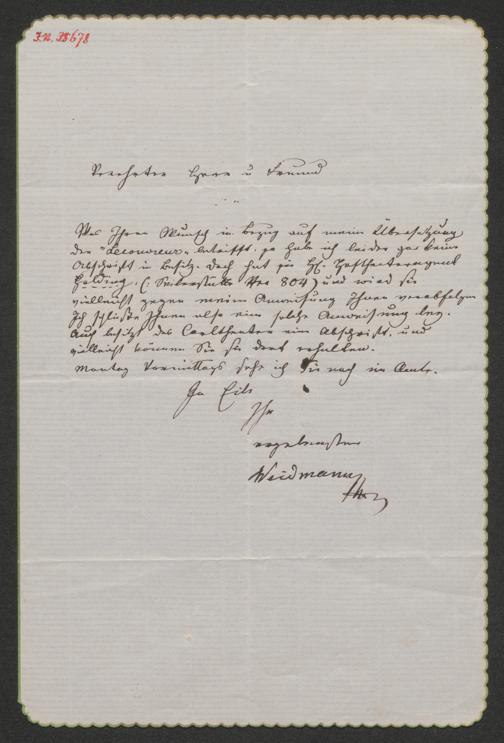 J.N. 38678
Verehrter Herr u Freund
Was Ihren Wunsch in Bezug auf meine Übersetzung
der "Lecouvreur" betrifft, so habe ich leider gar keine
Abschrift in Besitz. Doch hat sie H. Hoftheateragent
Holding, (: Nro 804) und wird sie
vielleicht gegen meine Anweisung Ihnen verabfolgen
Ich schließe Ihnen also eine solche Anweisung bey.
Auch besitzt das Carltheater eine Abschrift, und
vielleicht können Sie sie dort erhalten.
Montag Vormittags sehe ich Sie noch im Amte.
In Eile
Ihr
ergebenster
Weidmann